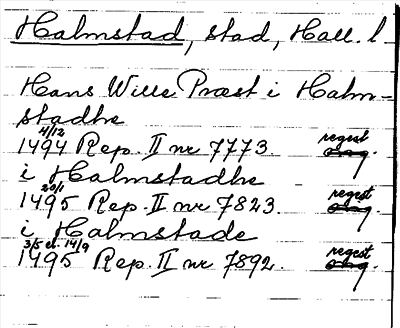 Halmstad, stad, Hall. l
Hans Wille Præst i Halm-
stadhe
4/12 regest
1494 Rep. II nr 7773. orig.
i Halmstadhe
20/1 regest
1495 Rep. II nr 7823. orig.
i Halmstade
3/5 el. 14/9 regest
1495 Rep. II nr 7892. orig.